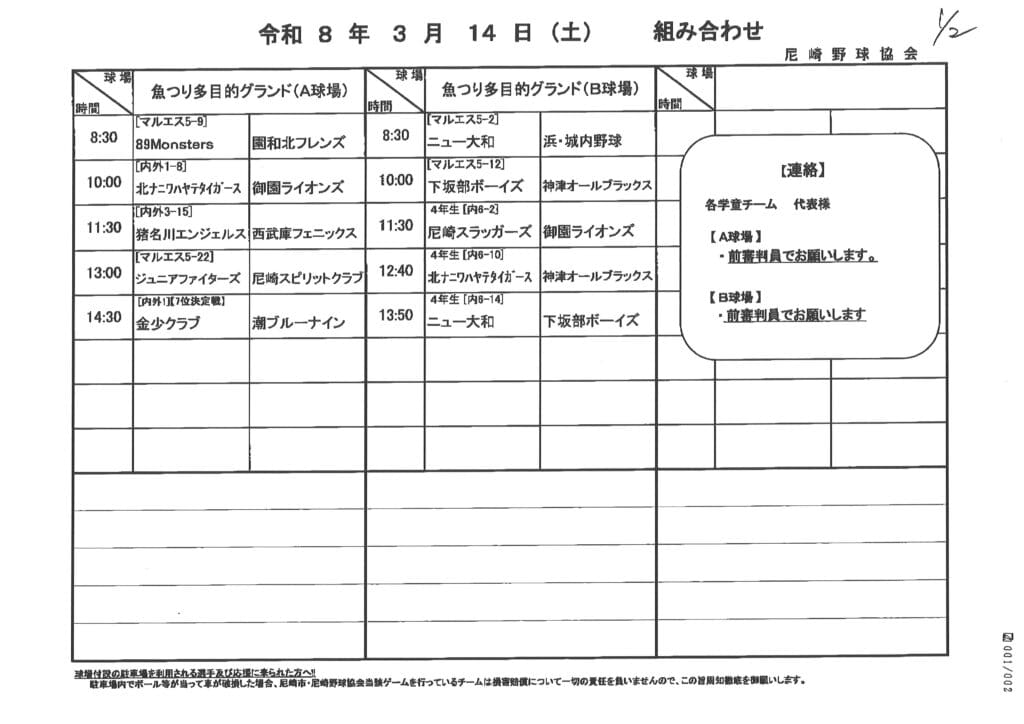 令和 8 年 3 月 14 日（土） 組み合わせ
1/2
尼崎野球協会
球場 時間 魚つり多目的グランド（A球場） 球場 時間 魚つり多目的グランド（B球場） 球場 時間
8:30 [マルエス5-9] 89Monsters 園和北フレンズ 8:30 [マルエス5-2] ニュー大和 浜・城内野球
10:00 [内外1-8] 北ナニワハヤテタイガース 御園ライオンズ 10:00 [マルエス5-12] 下坂部ボーイズ 神津オールブラックス
11:30 [内外3-15] 猪名川エンジェルス 西武庫フェニックス 11:30 4年生 [内6-2] 尼崎スラッガーズ 御園ライオンズ
13:00 [マルエス5-22] ジュニアファイターズ 尼崎スピリットクラブ 12:40 4年生 [内6-10] 北ナニワハヤテタイガース 神津オールブラックス
14:30 [内外1][7位決定戦] 金少クラブ 潮ブルーナイン 13:50 4年生 [内6-14] ニュー大和 下坂部ボーイズ
【連絡】
各学童チーム 代表様
【A球場】
・前審判員でお願いします。
【B球場】
・前審判員でお願いします
球場付設の駐車場を利用される選手及び応援に来られた方へ!!
駐車場内でボール等が当って車が破損した場合、尼崎市・尼崎野球協会当該ゲームを行っているチームは損害賠償について一切の責任を負いませんので、この旨周知徹底を御願いします。
001/002